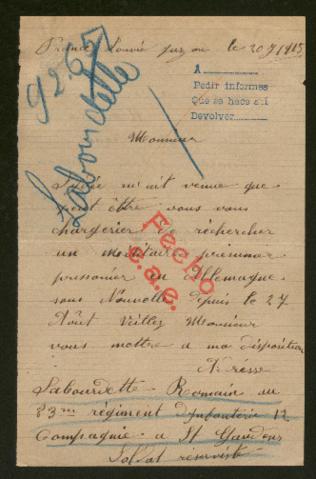 France Louvie juzon le 20 7 1915
9265
Labourdette
A
Pedir informes
Que se hace así
Devolver
Monsieur
L'idée m'ait venue que
peut être vous vous
chargerier de rechercher
un militaire prisonnier
prisonnier en Allemagne
sous Nouvelle depuis le 27
Août Veillez Monsieur
vous mettre a ma disposition
Adresse
Fecho
e.a.e.
Labourdette Romain au
83me régiment d'infanterie 12
Compagnie a St Gaudens
Soldat réserviste